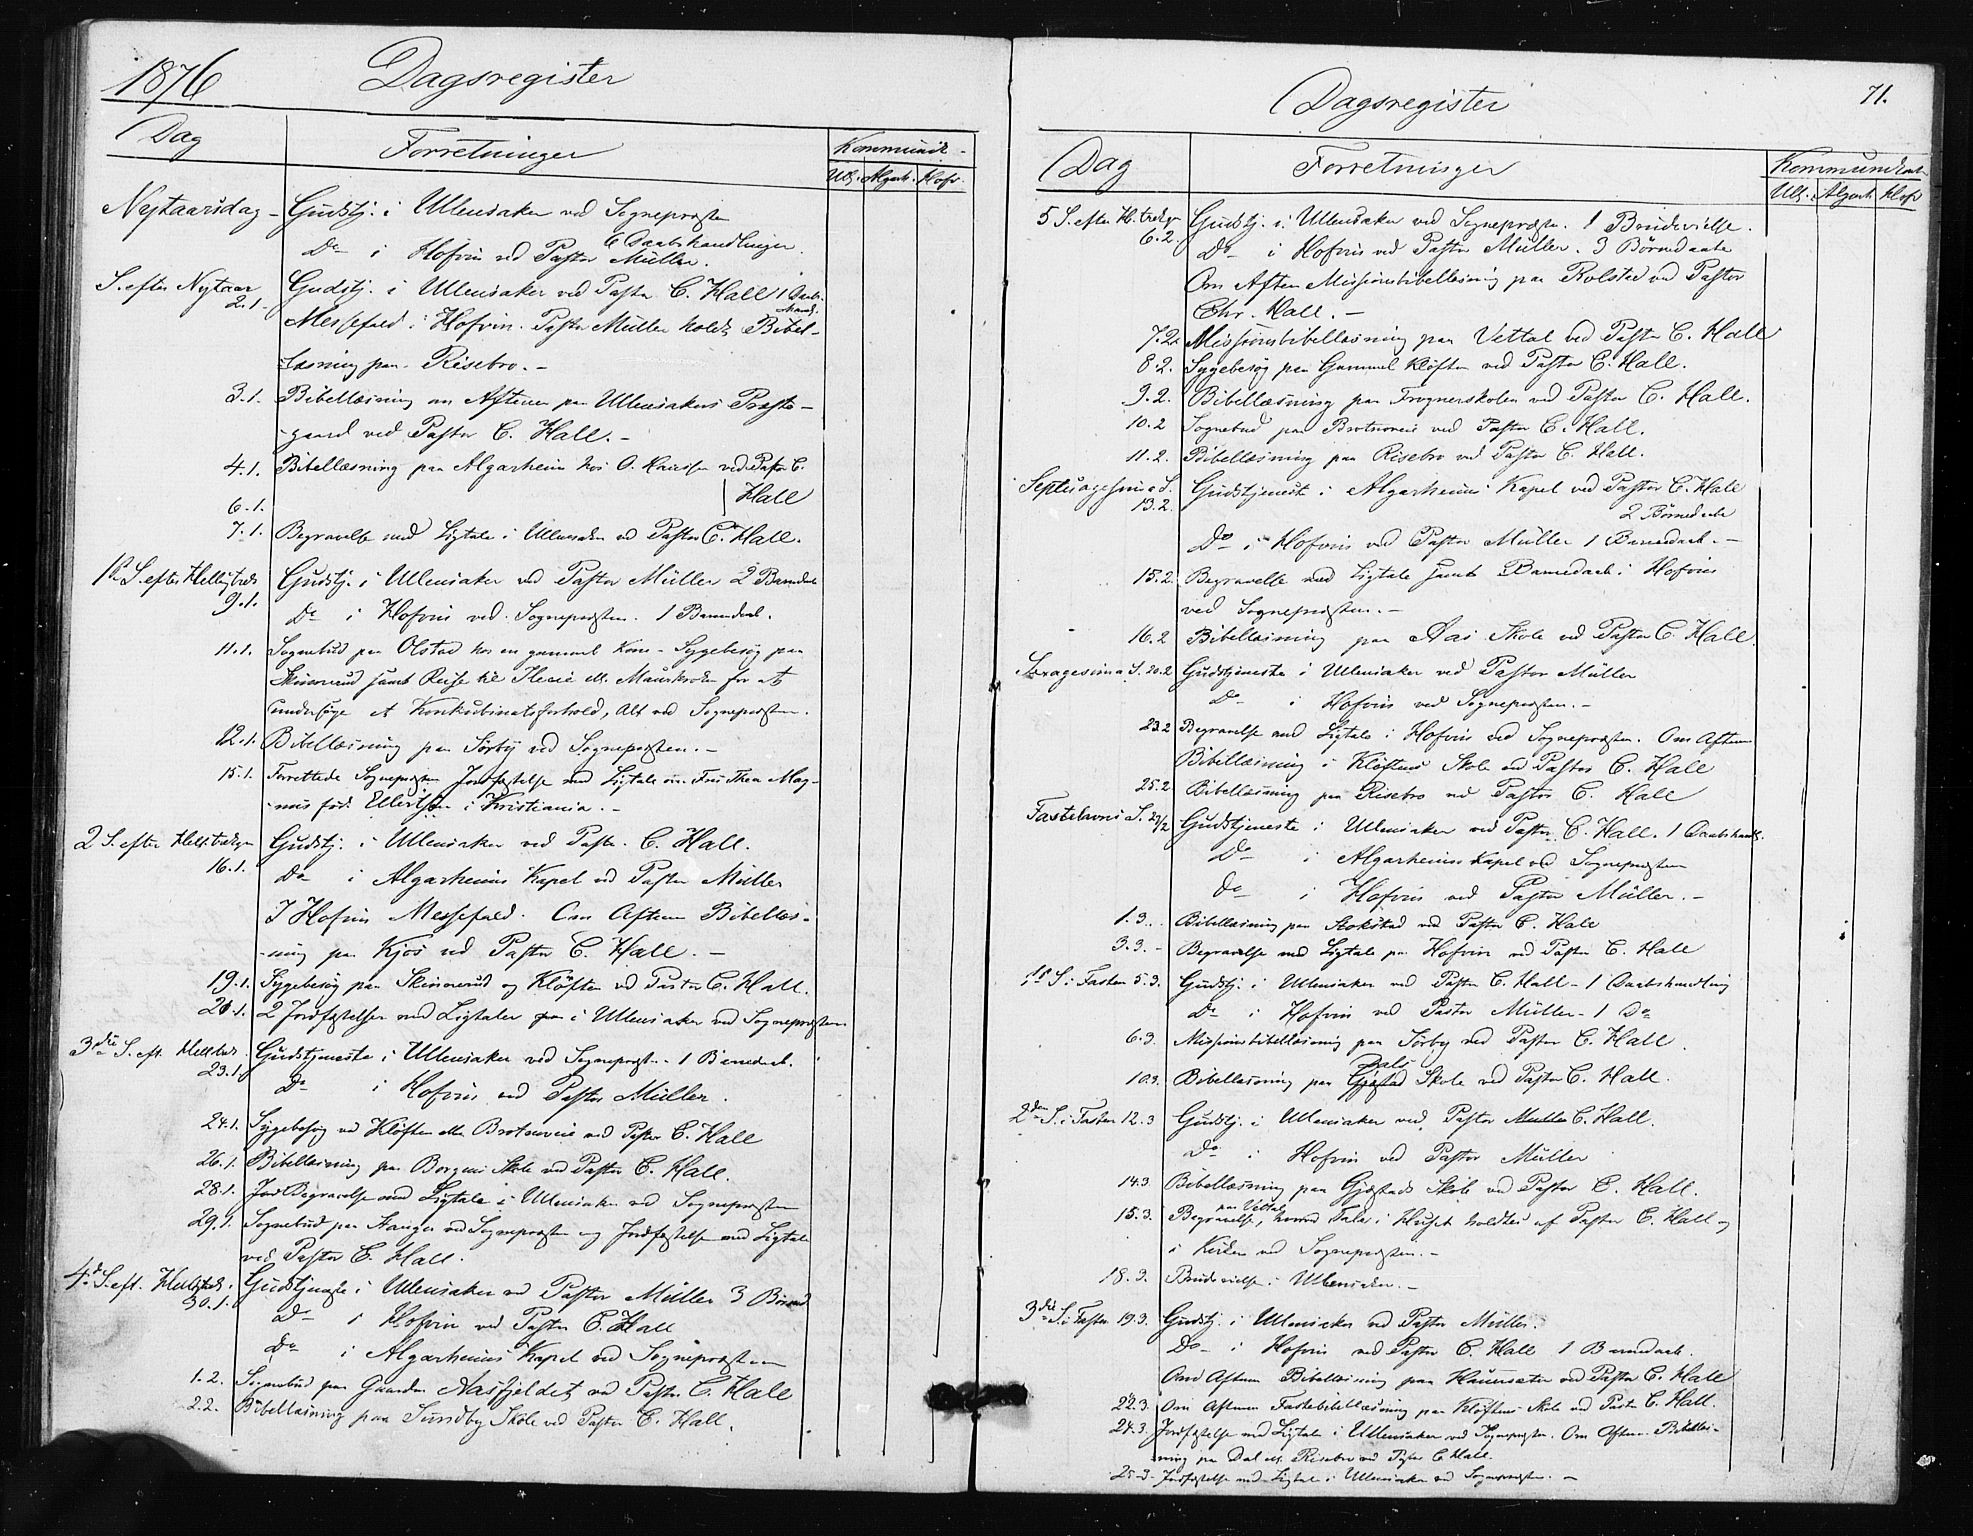 1876 Dagsregister
Dag Forretninger Kommunik-
Ull. Algarh. Hofv.
Nytaarsdag - Gudstj. i Ullensaker ved Sognepræsten
6 Daabshandlinger.
Do i Hofvin ved Pastor Müller.
S. efter Nytaar Gudstj. i Ullensaker ved Pastor C. Hall 1 Daabs-
2.1. handl.
Messefald i Hofvin. Pastor Müller holdt Bibel-
læsning paa Risebro. -
3.1. Bibellæsning om Aftenen paa Ullensakers Præste-
-gaard ved Pastor C. Hall. -
4.1. Bibellæsning paa Algarheim hos O. ved Pastor C.
Hall
6.1.
7.1. Begravelse med Ligtale i Ullensaker ved Pastor C. Hall.
1ste S. efter Hellig Gudstj. i Ullensaker ved Pastor Müller 2 Barnedaab
9.1. Do i Hofvin ved Sognepræsten. 1 Barnedaab.
11.1. Sognebud paa Olstad hos en gammel Kone - Sygebesøg paa
Skinnerud samt Reise til for at
undersøge et Konkubinatsforhold, Alt ved Sognepræsten.
12.1. Bibellæsning paa Sörby ved Sognepræsten. -
15.1. Forrettede Sognepræsten Jordfæstelse med Ligtale Fru Thea Mag-
-nus født i Kristiania. -
2 S. efter Hell. Gudstj. i Ullensaker ved Pastor C. Hall.
16.1. Do i Algarheims Kapel ved Pastor Müller
I Hofvin Messefald. Om Aftenen Bibellæs-
-ning paa Kjos ved Pastor C. Hall. -
19.1. Sygebesøg paa Skinnerud og Kløften ved Pastor C. Hall.
20.1. 2 Jordfæstelser med Ligtaler i Ullensaker ved Sognepræsten.
3die S. eft. Gudstjeneste i Ullensaker ved Sognepræst. - 1 Barnedaab.
23.1. Do i Hofvin ved Pastor Müller.
24.1. Sygebesøg ved Kløften ved Pastor C. Hall
26.1. Bibellæsning paa Borgens Skole ved Pastor C. Hall.
28.1. Begravelse med Ligtale i Ullensaker ved Sognepræsten
29.1. Sognebud paa Hauger ved Sognepræsten og Jordfæstelse med Ligtale
ved Pastor C. Hall.
4de S. eft. Gudstjeneste i Ullensaker ved Pastor Müller 3
30.1. Do i Hofvin ved Pastor C. Hall
Do i Algarheims Kapel ved Sognepræsten
1.2. Sognebud paa Gaarden Aasfjeldet ved Pastor C. Hall
2.2. Bibellæsning paa Sundby Skole ved Pastor C. Hall.
Dagsregister 71.
Dag Forretninger
Ull. Algarh. Hofv.
5 S. efter H. Gudstj. i Ullensaker ved Sognepræsten. 1 Brudevielse.
6.2. Do i Hofvin ved Pastor Müller. 3 Børnedaabe
Om Aften Missionsbibellæsning paa Rolstad ved Pastor
Chr. Hall. -
7.2. Missionsbibellæsning paa Vettal ved Pastor C. Hall
8.2. Sygebesøg paa Gammel Kløften ved Pastor C. Hall.
9.2. Bibellæsning paa Frognerskolen ved Pastor C. Hall.
10.2 Sognebud paa ved Pastor C. Hall.
11.2. Bibellæsning paa Risebro ved Pastor C. Hall.
Septuagesima S. Gudstjeneste i Algarheims Kapel ved Pastor C. Hall
13.2. 2 Børnedaabe
Do i Hofvin ved Pastor Müller 1 Barnedaab. -
15.2 Begravelse med Ligtale samt Barnedaab i Hofvin
ved Sognepræsten. -
16.2 Bibellæsning paa Aas Skole ved Pastor C. Hall
Sexagesima S. 20.2 Gudstjeneste i Ullensaker ved Pastor Müller
Do i Hofvin ved Sognepræsten. -
23.2 Begravelse med Ligtale i Hofvin ved Sognepræsten. Om Aftenen
Bibellæsning i Kløftens Skole ved Pastor C. Hall
25.2 Bibellæsning paa Risebro ved Pastor C. Hall
Fastelavns S. 27/2 Gudstjeneste i Ullensaker ved Pastor C. Hall. 1 Daabshandl.
Do i Algarheims Kapel ved Sognepræsten
Do i Hofvin ved Pastor Müller. -
1.3. Bibellæsning paa Stokstad ved Pastor C. Hall
3.3. - Begravelse med Ligtale paa Hofvin ved Pastor C. Hall
1ste S. i Fasten 5.3. Gudstj. i Ullensaker ved Pastor C. Hall - 1 Daabshandling
Do i Hofvin ved Pastor Müller - 1 Do
6.3. Missionsbibellæsning paa Sörby ved Pastor C. Hall.
Dals
10.3. Bibellæsning paa Gjestad Skole ved Pastor C. Hall.
2den S. i Fasten 12.3 Gudstj. i Ullensaker ved Pastor Müller C. Hall.
Do i Hofvin ved Pastor Müller
14.3. Bibellæsning paa Gjestads Skole ved Pastor C. Hall.
paa Vettal
15.3. Begravelse, hvorved Tale i Huset holdtes af Pastor C. Hall og
i Kirken ved Sognepræsten. -
18.3. Brudevielse i Ullensaker. -
3die S. i Fasten 19.3. Gudstj. i Ullensaker ved Pastor Müller.
Do - i Hofvin ved Pastor C. Hall 1 Barnedaab.
Om Aftenen Bibellæsning paa Hauersæter ved Pastor C. Hall
22.3. Om Aftenen Fastebibellæsning paa Kløftens Skole ved Pastor C. Hall.
24.3. Jordfæstelse med Ligtale i Ullensaker ved Sognepræsten. Om Aftenen Bibellæs-
ning paa Dal Risebro ved Pastor C. Hall.
25.3. Jordfæstelse med Ligtale i Ullensaker ved Sognepræsten. -